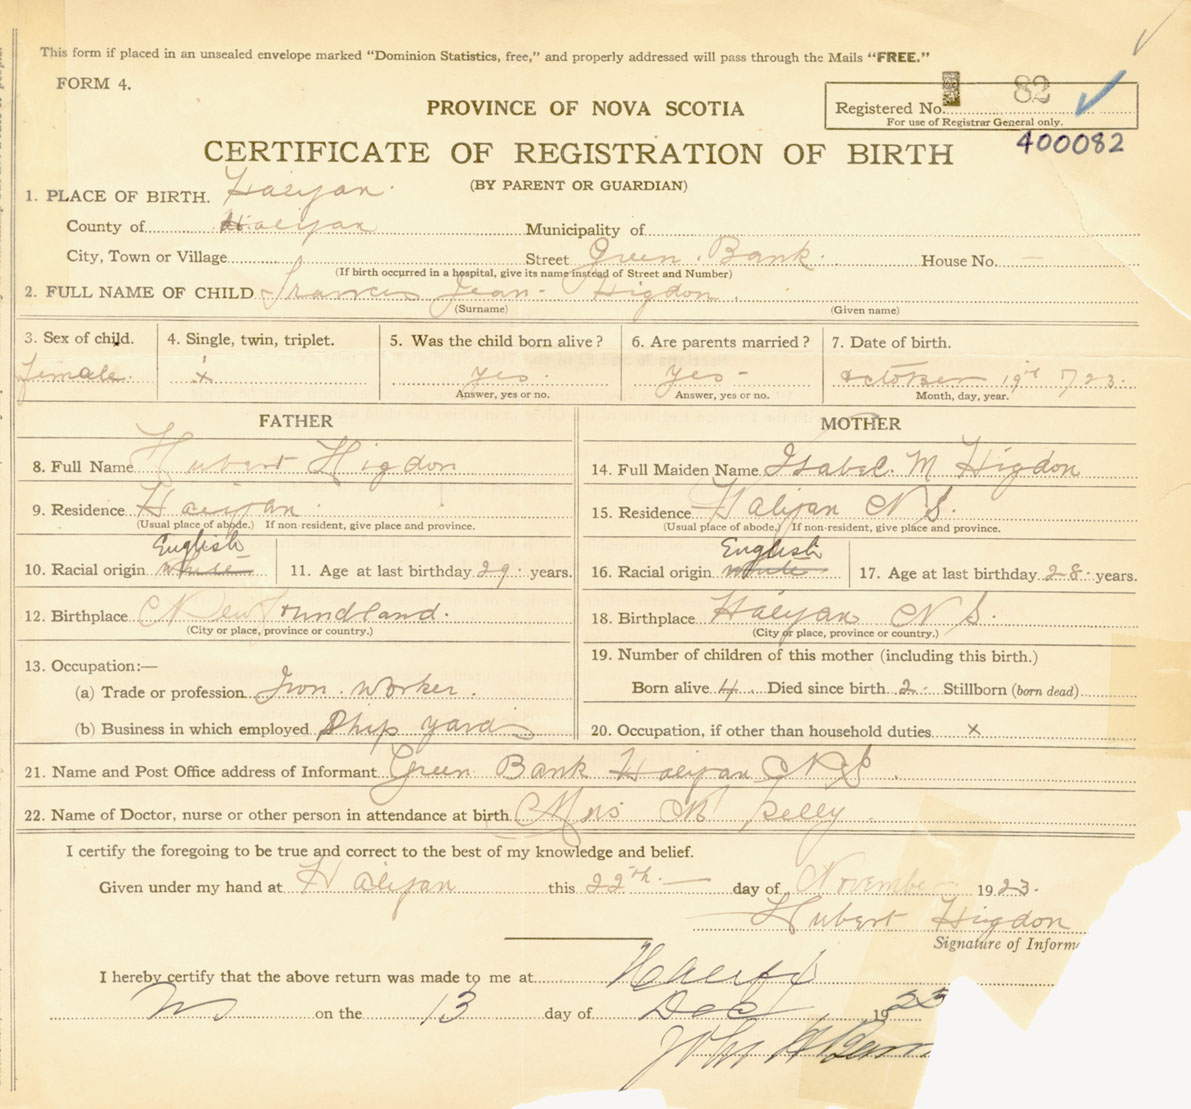 This form if placed in an unsealed envelope marked "Dominion Statistics, free," and properly addressed will pass through the Mails "FREE."
FORM 4.
PROVINCE OF NOVA SCOTIA
Registered No. 82
For use of Registrar General only.
400082
CERTIFICATE OF REGISTRATION OF BIRTH
(BY PARENT OR GUARDIAN)
1. PLACE OF BIRTH. Halifax
County of Halifax Municipality of
City, Town or Village Street Green Bank. House No. —
(If birth occurred in a hospital, give its name instead of Street and Number)
2. FULL NAME OF CHILD Frances Jean Higdon
(Surname) (Given name)
3. Sex of child. 4. Single, twin, triplet. 5. Was the child born alive? 6. Are parents married? 7. Date of birth.
Female x yes yes - October 19th 1923.
Answer, yes or no. Answer, yes or no. Month, day, year.
FATHER MOTHER
8. Full Name Hubert Higdon
9. Residence Halifax
(Usual place of abode.) If non-resident, give place and province.
English
10. Racial origin white 11. Age at last birthday 29 years.
12. Birthplace Newfoundland.
(City or place, province or country.)
13. Occupation:—
(a) Trade or profession Iron worker.
(b) Business in which employed Ship yard
14. Full Maiden Name Isabel. M Higdon
15. Residence Halifax N S.
(Usual place of abode.) If non-resident, give place and province.
English
16. Racial origin white 17. Age at last birthday 28 years.
18. Birthplace Halifax N S.
(City or place, province or country.)
19. Number of children of this mother (including this birth.)
Born alive 4. Died since birth 2. Stillborn (born dead)
20. Occupation, if other than household duties x
21. Name and Post Office address of Informant Green Bank Halifax N S.
22. Name of Doctor, nurse or other person in attendance at birth Mrs
I certify the foregoing to be true and correct to the best of my knowledge and belief.
Given under my hand at Halifax this 22th. — day of November 1923.
Hubert Higdon
Signature of Inform
I hereby certify that the above return was made to me at Halifax
NS on the 13 day of Dec 1923
John